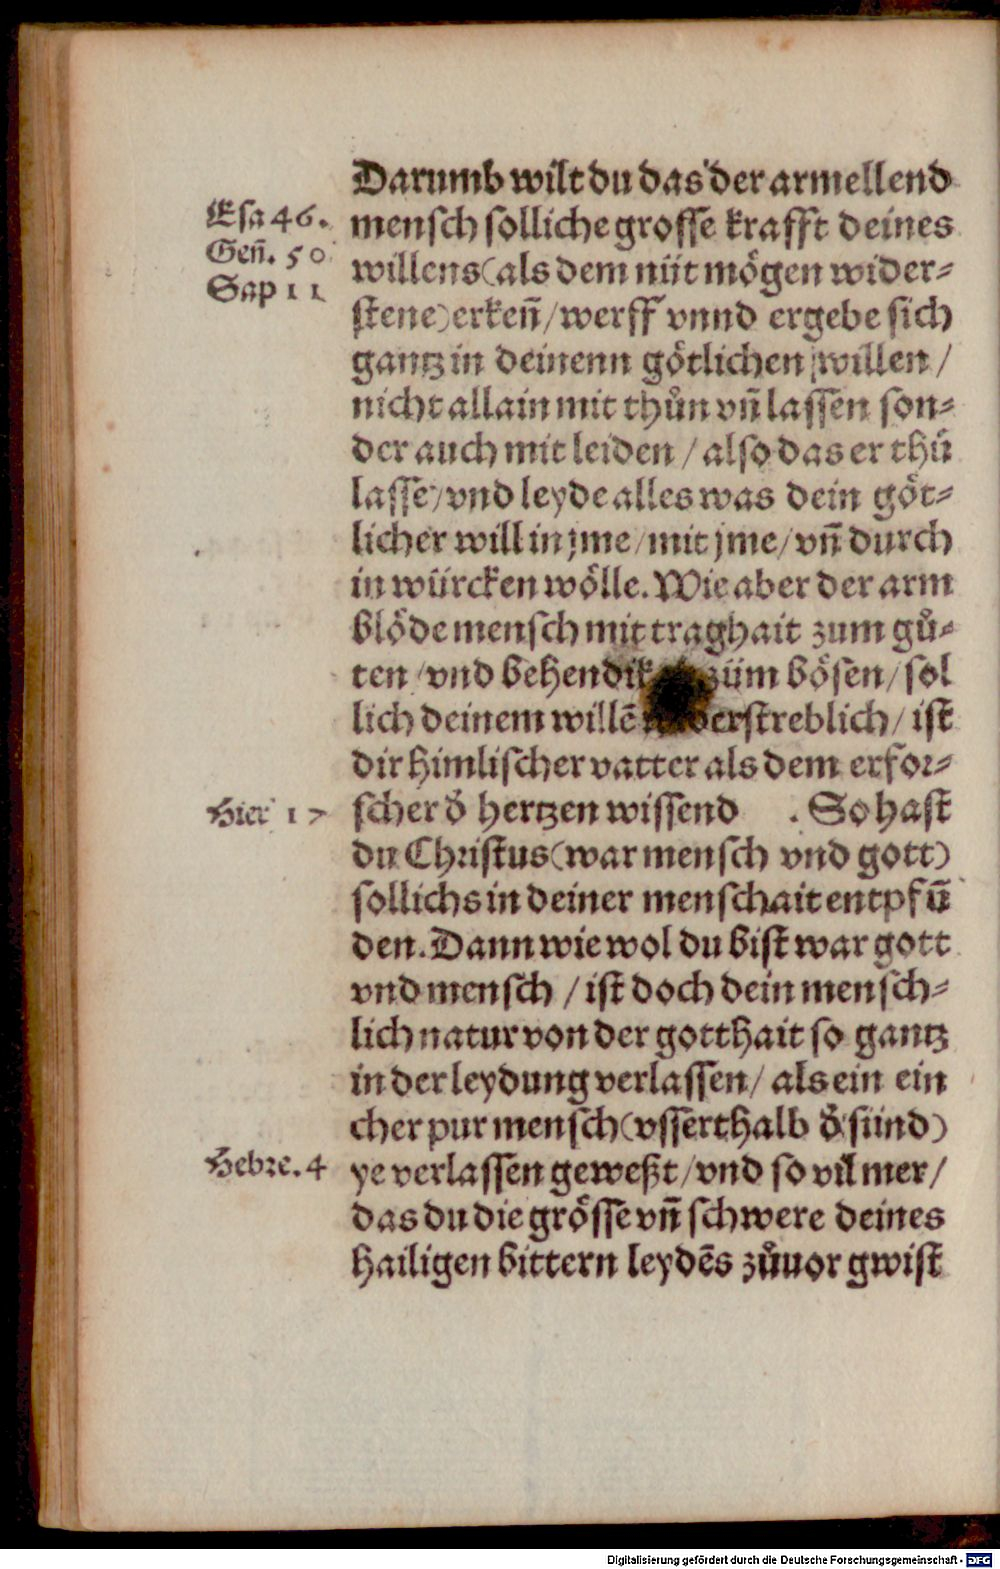 Darumb wilt du das der armellend
Esa 46.
mensch solliche grosse krafft deines
Geñ. 50
willens (als dem nüt mögen wider⸗
Sap 11
stene) erkeñ / werff vnnd ergebe sich
gantz in deinenn götlichen willen /
nicht allain mit thůn vñ lassen son⸗
der auch mit leiden / also das er thů
lasse / vnd leyde alles was dein göt⸗
licher will in jme / mit jme / vñ durch
in würcken wölle. Wie aber der arm
blöde mensch mit traghait zum gů⸗
ten / vnd zům bösen / sol
lich deinem willẽ / ist
dir himlischer vatter als dem erfor⸗
Hier 17
scher d̕ hertzen wissend . So hast
du Christus (war mensch vnd gott)
sollichs in deiner menschait entpfũ
den. Dann wie wol du bist war gott
vnd mensch / ist doch dein mensch⸗
lich natur von der gotthait so gantz
in der leydung verlassen / als ein ein
cher pur mensch (vsserthalb d̕ sünd)
Hebre. 4
ye verlassen geweßt / vnd so vil mer /
das du die grösse vñ schwere deines
hailigen bittern leydẽs zůuor gwist
Digitalisierung gefördert durch die Deutsche Forschungsgemeinschaft - DFG